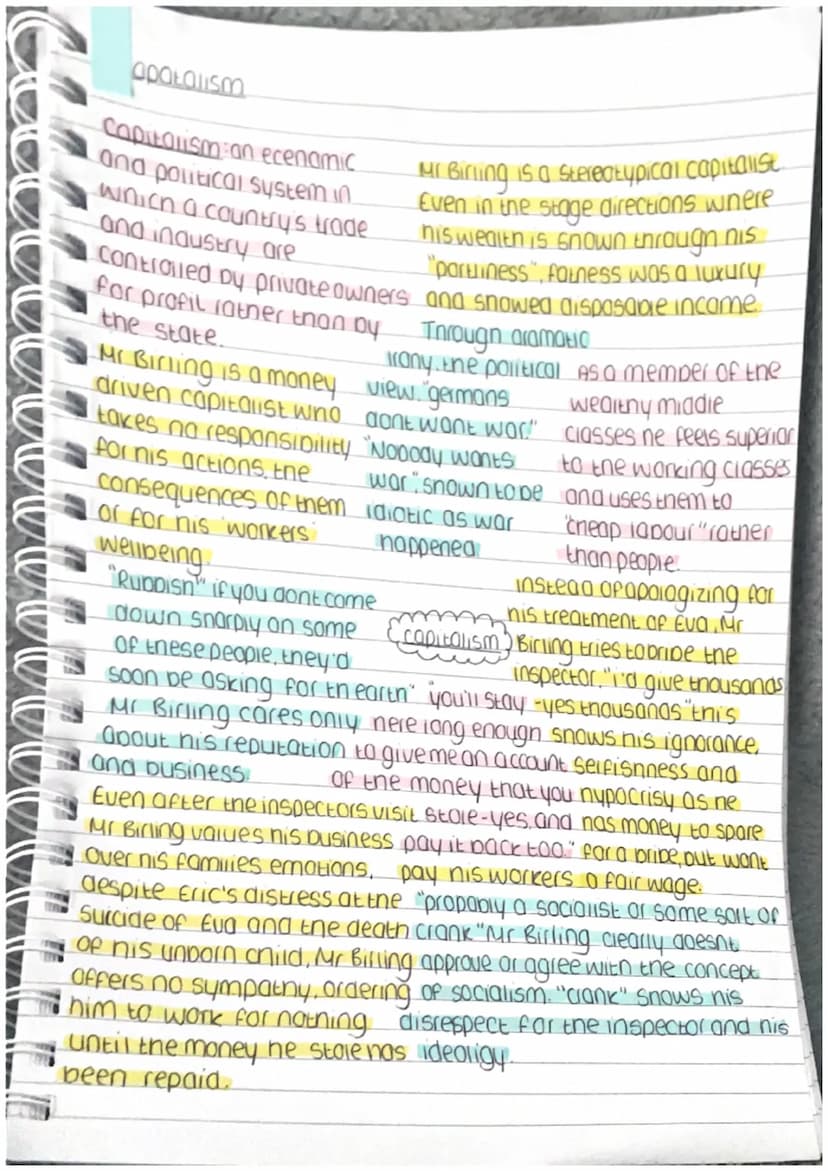 apatalism
Capitalism: an ecenamic
and political system in
which a country's trade
and industry are
controlled by private owners
for profit rather than by
the state.
Mr Birling is a stereotypical capitalist
Even in the stage directions where
his wealth is shown through his
"portliness", fatness was a luxury
and showed disposable income.
Mr Birling is a money
driven capitalist who
takes no responsibility
for his actions, the
consequences of them
or for his 'workers'
wellbeing.
Through dramatic
irony, the political
view. "germans
dont want war."
"Nobody wants
war", shown to be
idiotic as war
happened
As a member of the
wealthy middle
classes he feels superior
to the working classes
and uses them to
"cheap labour" rather
than people.
"Rubbish" if you dont come
down sharply on some
of these people, they'd
soon be asking for th earth"
Mr Birling cares only
about his reputation
and business
capitalism
Instead of apologizing for
his treatment of Eva, Mr
Birling tries to bribe the
inspector. "i'd give thousands
-yes thousands" this
shows his ignorance,
selfishness and
hypocrisy as he
has money to spare
for a bribe, but wont
pay his workers a fair wage.
"you'll stay
here long enough
to give me an account
of the money that you
stole-yes, and
pay it back too."
Even after the inspectors visit
Mr Birling values his business
over his families emotions,
despite Eric's distress at the
suicide of Eva and the death
of his unborn child, Mr Birling
offers no sympathy, ordering
him to work for nothing
until the money he stole has
been repaid.
"probably a socialist or some sort of
crank" Mr Birling clearly doesnt
approve or agree with the concept
of socialism. "crank" shows his
disrespect for the inspector and his
ideoligy.